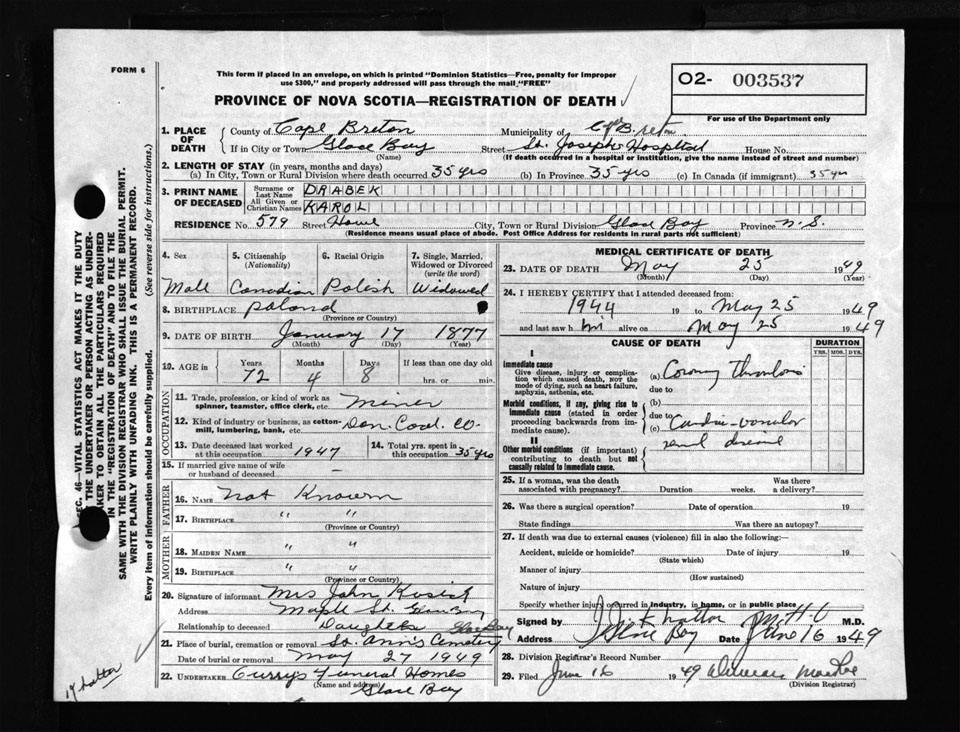 FORM 6
This form if placed in an envelope, on which is printed "Dominion Statistics—Free, penalty for improper
use $300," and properly addressed will pass through the mail "FREE"
PROVINCE OF NOVA SCOTIA—REGISTRATION OF DEATH
O2- 003537
For use of the Department only
1. PLACE OF DEATH
County of Cape Breton Municipality of C. Breton
If in City or Town Glace Bay Street St. Joseph Hospital House No.
(Name) (If death occurred in a hospital or institution, give the name instead of street and number)
2. LENGTH OF STAY (in years, months and days)
(a) In City, Town or Rural Division where death occurred 35 yrs (b) In Province 35 yrs (c) In Canada (if immigrant) 35 yrs
3. PRINT NAME OF DECEASED
Surname or Last Name DRABEK
All Given or Christian Names KAROL
RESIDENCE No. 579 Street Howe City, Town or Rural Division Glace Bay Province N.S.
(Residence means usual place of abode. Post Office Address for residents in rural parts not sufficient)
4. Sex 5. Citizenship (Nationality) 6. Racial Origin 7. Single, Married, Widowed or Divorced (write the word)
Male Canadian Polish Widowed
8. BIRTHPLACE Poland
(Province or Country)
9. DATE OF BIRTH January 17 1877
(Month) (Day) (Year)
10. AGE in Years Months Days If less than one day old
72 4 8 hrs. or min.
OCCUPATION
11. Trade, profession, or kind of work as spinner, teamster, office clerk, etc. Miner
12. Kind of industry or business, as cotton-mill, lumbering, bank, etc. Dom. Coal. Co.
13. Date deceased last worked at this occupation 1947
14. Total yrs. spent in this occupation 35 yrs
15. If married give name of wife or husband of deceased —
FATHER
16. NAME Not Known
17. BIRTHPLACE " "
(Province or Country)
MOTHER
18. MAIDEN NAME " "
19. BIRTHPLACE " "
(Province or Country)
20. Signature of informant Mrs John
Address Maple St.
Relationship to deceased Daughter Glace Bay
21. Place of burial, cremation or removal St. Ann's Cemetery
Date of burial or removal May 27 1949
22. UNDERTAKER Curry's Funeral Homes
(Name and address)
Glace Bay
MEDICAL CERTIFICATE OF DEATH
23. DATE OF DEATH May 25 1949
(Month) (Day) (Year)
24. I HEREBY CERTIFY that I attended deceased from:
1944 19 to May 25 1949
and last saw h im alive on May 25 1949
CAUSE OF DEATH DURATION
YRS. MOS. DYS.
I
Immediate cause
Give disease, injury or complication which caused death, NOT the mode of dying, such as heart failure, asphyxia, asthenia, etc.
(a) Coronary thrombosis
due to
Morbid conditions, if any, giving rise to immediate cause (stated in order proceeding backwards from immediate cause).
(b)
due to
(c) Cardio-vascular
renal disease
II
Other morbid conditions (if important) contributing to death but not causally related to immediate cause.
25. If a woman, was the death associated with pregnancy? Duration weeks. Was there a delivery?
26. Was there a surgical operation? Date of operation 19
State findings Was there an autopsy?
27. If death was due to external causes (violence) fill in also the following:
Accident, suicide or homicide? Date of injury 19
(State which)
Manner of injury
(How sustained)
Nature of injury
Specify whether injury occurred in industry, in home, or in public place
Signed by M.D.
Address Glace Bay Date June 16 1949
28. Division Registrar's Record Number
29. Filed June 16 1949
(Division Registrar)
SEC. 46—VITAL STATISTICS ACT MAKES IT THE DUTY
OF THE UNDERTAKER OR PERSON ACTING AS UNDER-
TAKER TO OBTAIN ALL THE PARTICULARS REQUIRED
IN THE "REGISTRATION OF DEATH" AND TO FILE THE
SAME WITH THE DIVISION REGISTRAR WHO SHALL ISSUE THE BURIAL PERMIT.
WRITE PLAINLY WITH UNFADING INK. THIS IS A PERMANENT RECORD.
Every item of information should be carefully supplied. (See reverse side for instructions.)